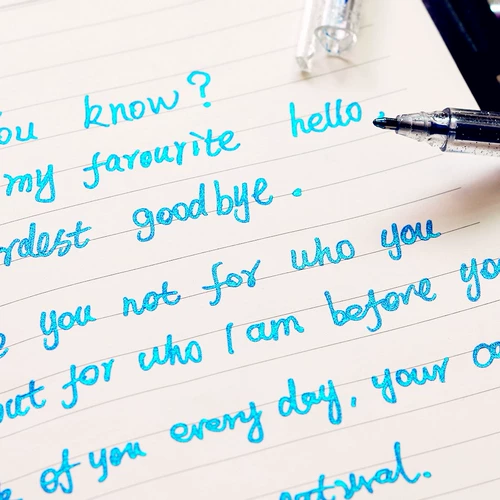 you know?
my favourite hello.
rdest goodbye.
e you not for who you
out for who I am before yo
e of you every day, your co